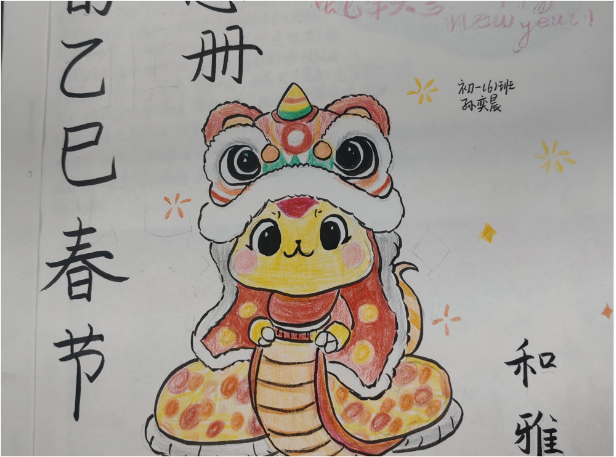 乙巳春节
册
new year!
初一(6)班
孙奕晨
和雅